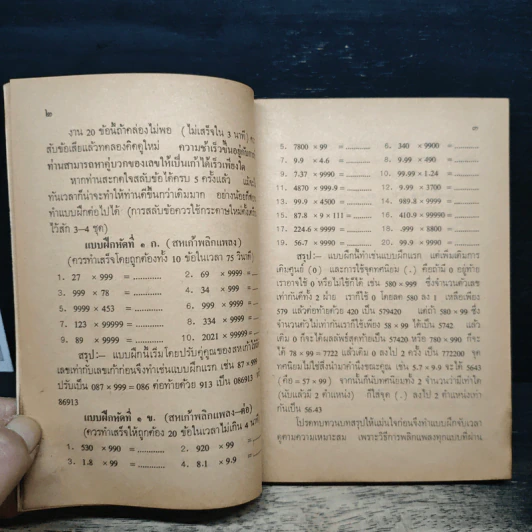 ๒
งาน 20 ข้อนี้ถ้าคล่องไม่พอ (ไม่เสร็จใน 3 นาที)
สลับข้อเสียแล้วทดลองคิดดูใหม่ ความช้าเร็วขึ้นอยู่กับ
ท่านสามารถหาคู่บวกของเลขให้เป็นเก้าได้เร็วเพียงใด
หากท่านสะกดใจสลับข้อได้ครบ 5 ครั้งแล้ว
ทันเวลาก็น่าจะทำให้ท่านดีขึ้นกว่าเดิมมาก อย่างน้อยก็
ทำแบบฝึกต่อไปได้ (การสลับข้อควรใช้กระดาษใหม่
ไว้สัก 3–4 ชุด)
แบบฝึกหัดที่ ๑ ก. (สหเก้าพลิกแพลง)
(ควรทำเสร็จโดยถูกต้องทั้ง 10 ข้อในเวลา 75 วินาที)
1. 27 ×999 = ........... 2. 69 ×9999 =
3. 999 ×78 = ........... 4. 34 ×999 =
5. 9999 ×453 = ........... 6. 999 ×9999 =
7. 123 ×99999 = ........... 8. 334 ×9999 =
9. 89 ×9999 = ........... 10. 2021 ×99999 =
สรุป:– แบบฝึกนี้เริ่มโดยปรับคู่คูณของสหเก้าให้มี
เลขเท่ากับเลขเก้าก่อนจึงทำเช่นแบบฝึกแรก เช่น 87 ×999
ปรับเป็น 087 ×999 =086 ต่อท้ายด้วย 913 เป็น 086913
86913
แบบฝึกหัดที่ ๑ ข. (สหเก้าพลิกแพลง–ต่อ)
(ควรทำเสร็จให้ถูกต้อง 20 ข้อในเวลาไม่เกิน 4 นาที
1. 530 ×990 = ........... 2. 920 ×99 =
3. 1.8 ×99 = ........... 4. 8.1 ×9.9 =
๓
5. 7800 ×99 = ........... 6. 340 ×9900 = ...........
7. 9.9 ×4.6 = ........... 8. 9.99 ×490 = ...........
9. 7.37 ×9990 = ........... 10. 99.99 ×1.24 = ...........
11. 4870 ×999.9 = ........... 12. 9.99 ×3700 = ...........
13. 99.9 ×4500 = ........... 14. 989.8 ×9999 = ...........
15. 87.8 ×9 ×111 = ........... 16. 410.9 ×99990 = ...........
17. 224.6 ×9999 = ........... 18. .999 ×8800 = ...........
19. 56.7 ×9990 = ........... 20. 99.9 ×9990 = ...........
สรุป:– แบบฝึกนี้ทำเช่นแบบฝึกแรก แต่เพิ่มเติมการ
เติมศูนย์ (0) และการใช้จุดทศนิยม (.) คือถ้ามี 0 อยู่ท้าย
เราอาจใช้ 0 หรือไม่ใช้ก็ได้ เช่น 580 ×999 ซึ่งจำนวนตัวเลข
เท่ากันดีทั้ง 2 ฝ่าย เราก็ใช้ 0 โดยลด 580 ลง 1 เหลือเพียง
579 แล้วต่อท้ายด้วย 420 เป็น 579420 แต่ถ้า 580 ×99 ซึ่ง
จำนวนตัวไม่เท่ากันเราก็ใช้เพียง 58 ×99 ได้เป็น 5742 แล้ว
เติม 0 ก็จะได้ผลลัพธ์สุดท้ายเป็น 57420 หรือ 780 ×990 ก็จะ
ได้ 78 ×99 = 7722 แล้วเติม 0 ลงไป 2 ครั้ง เป็น 772200 จุด
ทศนิยมไม่ใช่สิ่งนำมาคำนึงขณะคูณ เช่น 5.7 ×9.9 จะได้ 5643
(คือ = 57 ×99) จากนั้นก็นับทศนิยมทั้ง 2 จำนวนว่ามีเท่าใด
(นับแล้วมี 2 ตำแหน่ง) ก็ใส่จุด (.) ลงไป 2 ตำแหน่งเท่า
กันเป็น 56.43
โปรดทบทวนบทสรุปให้แม่นใจก่อนจึงทำแบบฝึกจับเวลา
ดูตามความเหมาะสม เพราะวิธีการพลิกแพลงทุกแบบที่ผ่าน